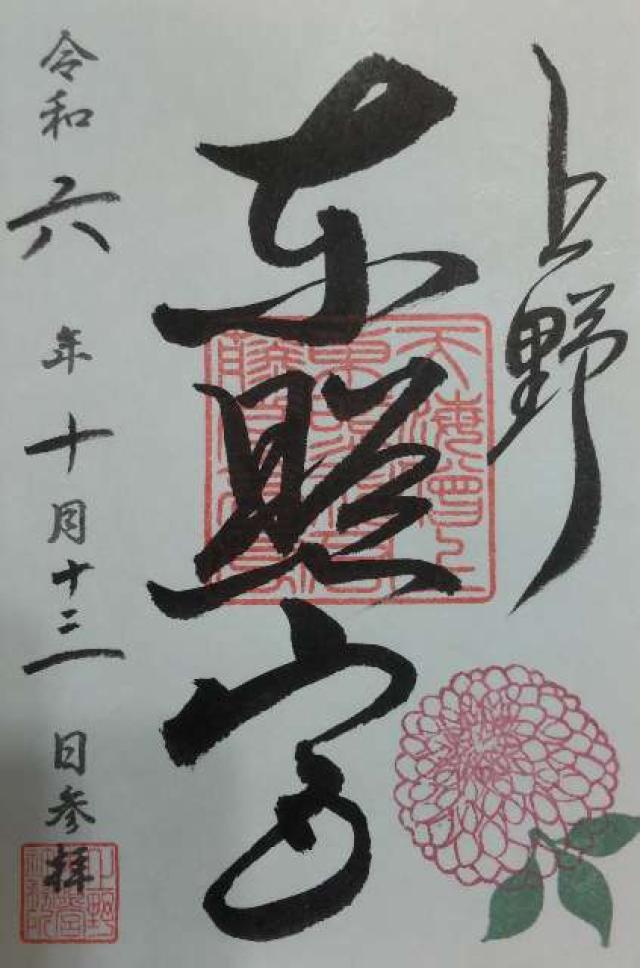 上野
東照宮
令和六年十月十三日参拝